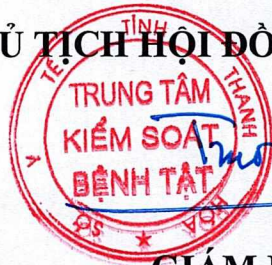 Ủ TỊCH HỘI ĐỒ
SỞ Y TẾ TỈNH THANH HÓA
TRUNG TÂM
KIỂM SOÁT
BỆNH TẬT
GIÁM